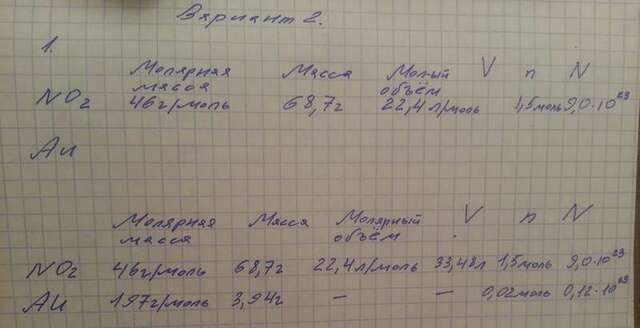 Вариант 2.
1.
Молярная масса Масса Мол-ый объём V n N
NO2 46г/моль 68,7г 22,4л/моль 1,5моль 9,0·10^23
Au
Молярная масса Масса Молярный объём V n N
NO2 46г/моль 68,7г 22,4л/моль 33,48л 1,5моль 9,0·10^23
Au 197г/моль 3,94г — — 0,02моль 0,12·10^23